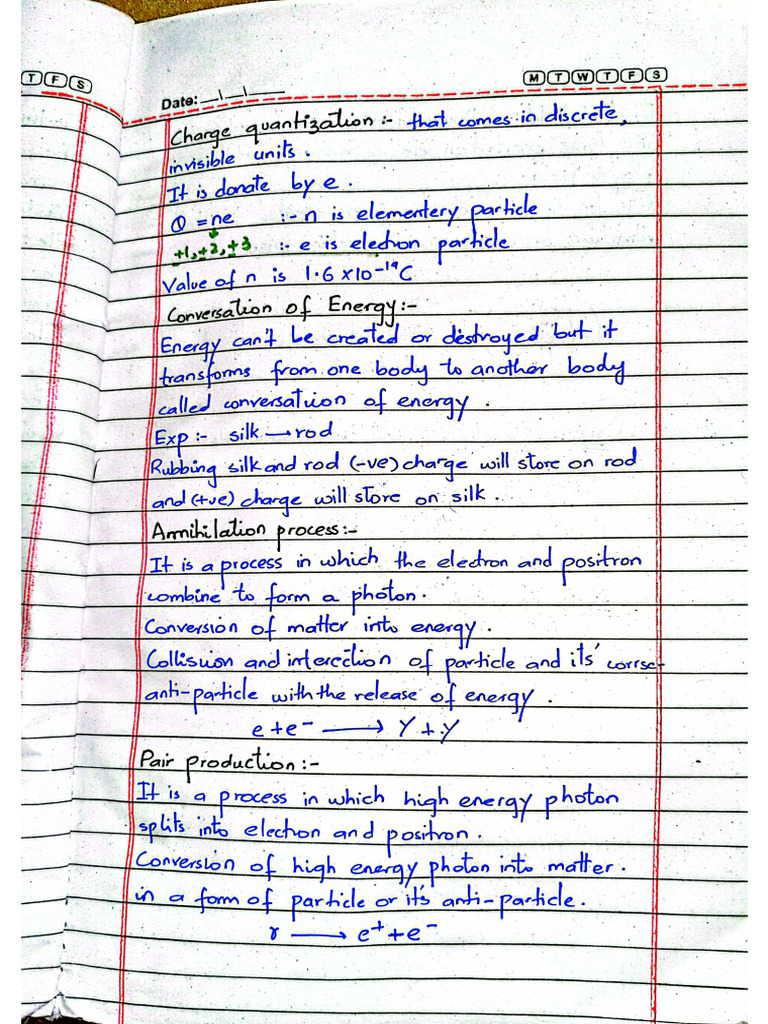 T F S
M T W T F S
Date:
Charge quantization :- that comes in discrete,
invisible units.
It is donate by e.
Q = ne :- n is elementery particle
+1, +2, +3 :- e is electron particle
Value of n is 1.6 x10⁻¹⁹C
Conversation of Energy:-
Energy can't be created or destroyed but it
transforms from one body to another body
called conversatuion of energy.
Exp:- silk → rod
Rubbing silk and rod (-ve) charge will store on rod
and (+ve) charge will store on silk.
Annihilation process:-
It is a process in which the electron and positron
combine to form a photon.
Conversion of matter into energy.
Collisuion and interection of particle and its' corrse-
anti-particle with the release of energy.
e + e⁻ → γ + γ
Pair production :-
It is a process in which high energy photon
splits into electron and positron.
Conversion of high energy photon into matter.
in a form of particle or it's anti-particle.
γ → e⁺ + e⁻